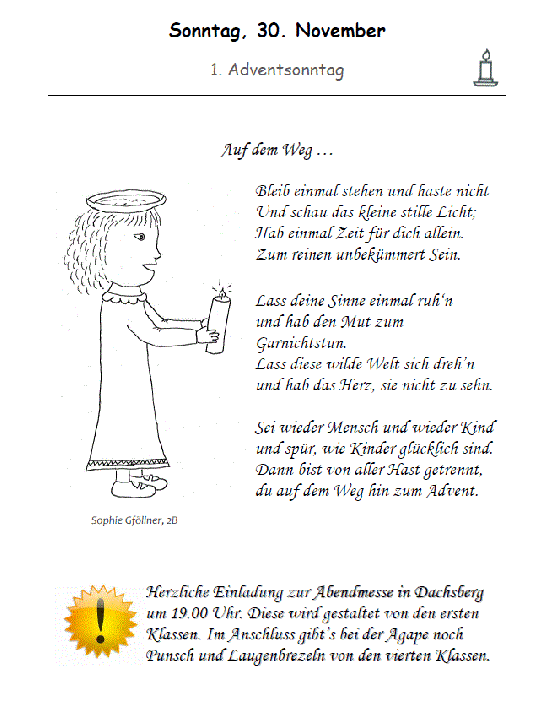 Sonntag, 30. November
1. Adventsonntag
Auf dem Weg ...
Bleib einmal stehen und haste nicht
Und schau das kleine stille Licht;
Hab einmal Zeit für dich allein.
Zum reinen unbekümmert Sein.
Lass deine Sinne einmal ruh'n
und hab den Mut zum
Garnichtstun.
Lass diese wilde Welt sich dreh'n
und hab das Herz, sie nicht zu sehn.
Sei wieder Mensch und wieder Kind
und spür, wie Kinder glücklich sind.
Dann bist von aller Hast getrennt,
du auf dem Weg hin zum Advent.
Sophie Gföllner, 2B
Herzliche Einladung zur Abendmesse in Dachsberg
um 19.00 Uhr. Diese wird gestaltet von den ersten
Klassen. Im Anschluss gibt's bei der Agape noch
Punsch und Laugenbrezeln von den vierten Klassen.